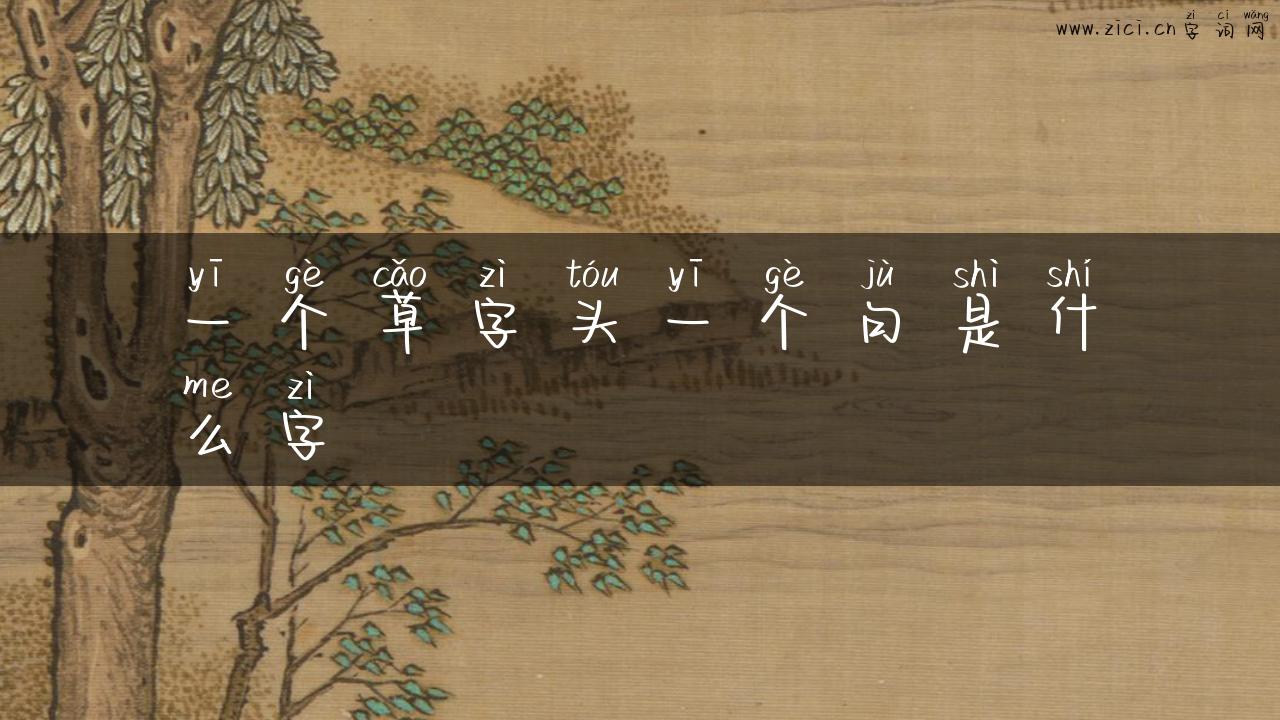 zì cí wǎng
www.zici.cn 字 词 网
yī gè cǎo zì tóu yī gè jù shì shí
一 个 草 字 头 一 个 句 是 什
me zì
么 字